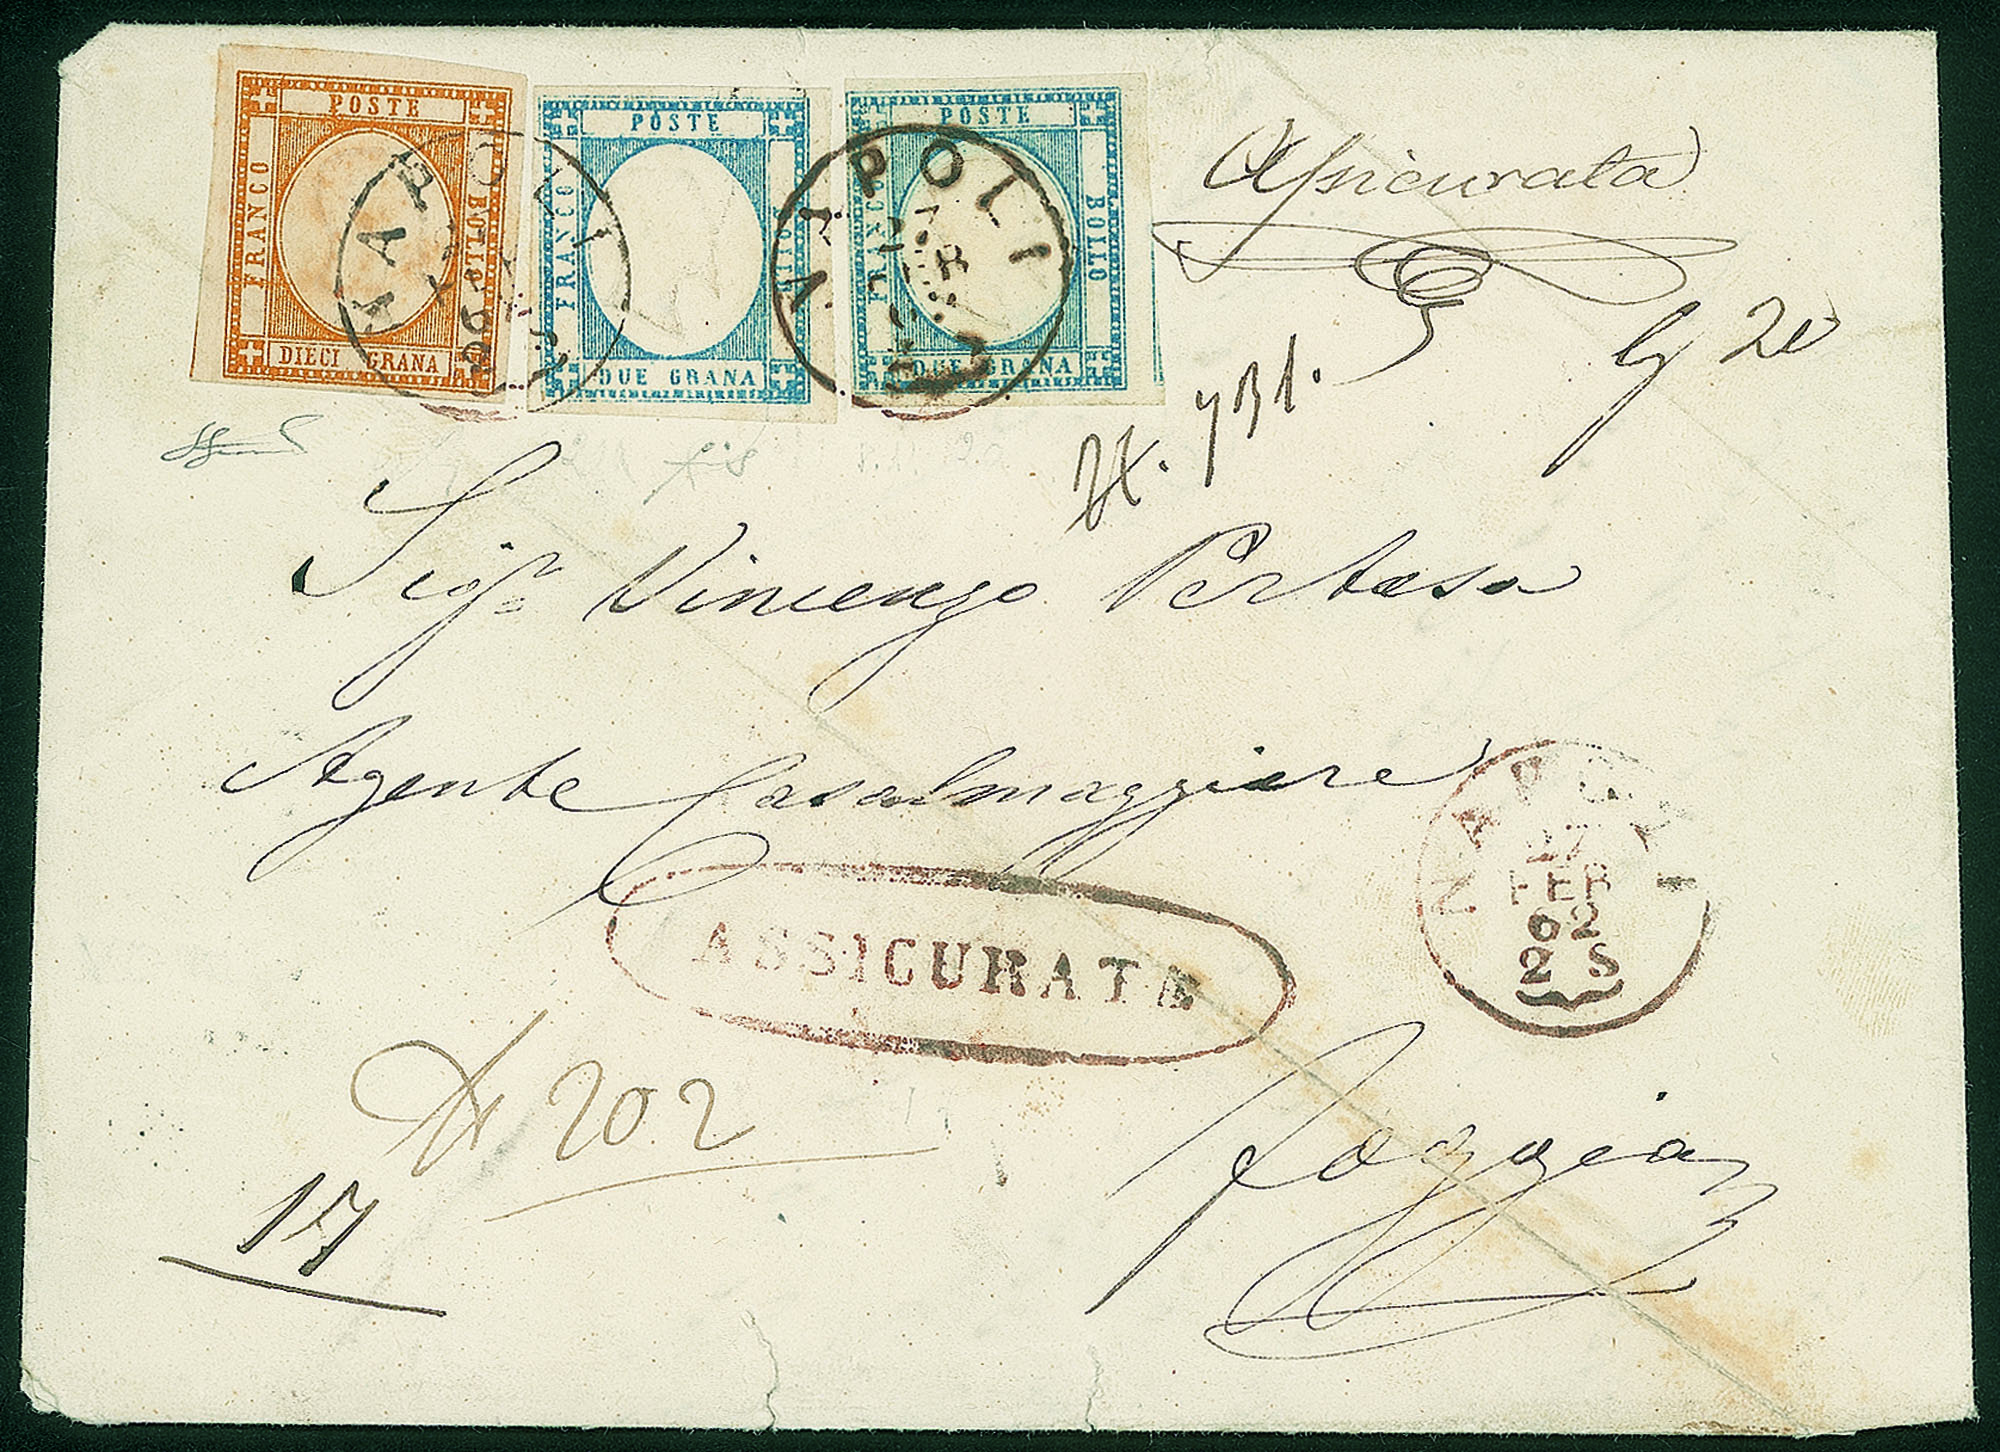 POSTE
FRANCO
BOLLO
DIECI GRANA
POSTE
FRANCO
BOLLO
DUE GRANA
POSTE
FRANCO
BOLLO
DUE GRANA
NAPOLI
NAPOLI
Assicurata
20
731.
Sigr. Vincenzo Pertosa
Agente Casalmaggiore
NAPOLI
27
FEB
62
2 S
ASSICURATE
202
17
Foggia